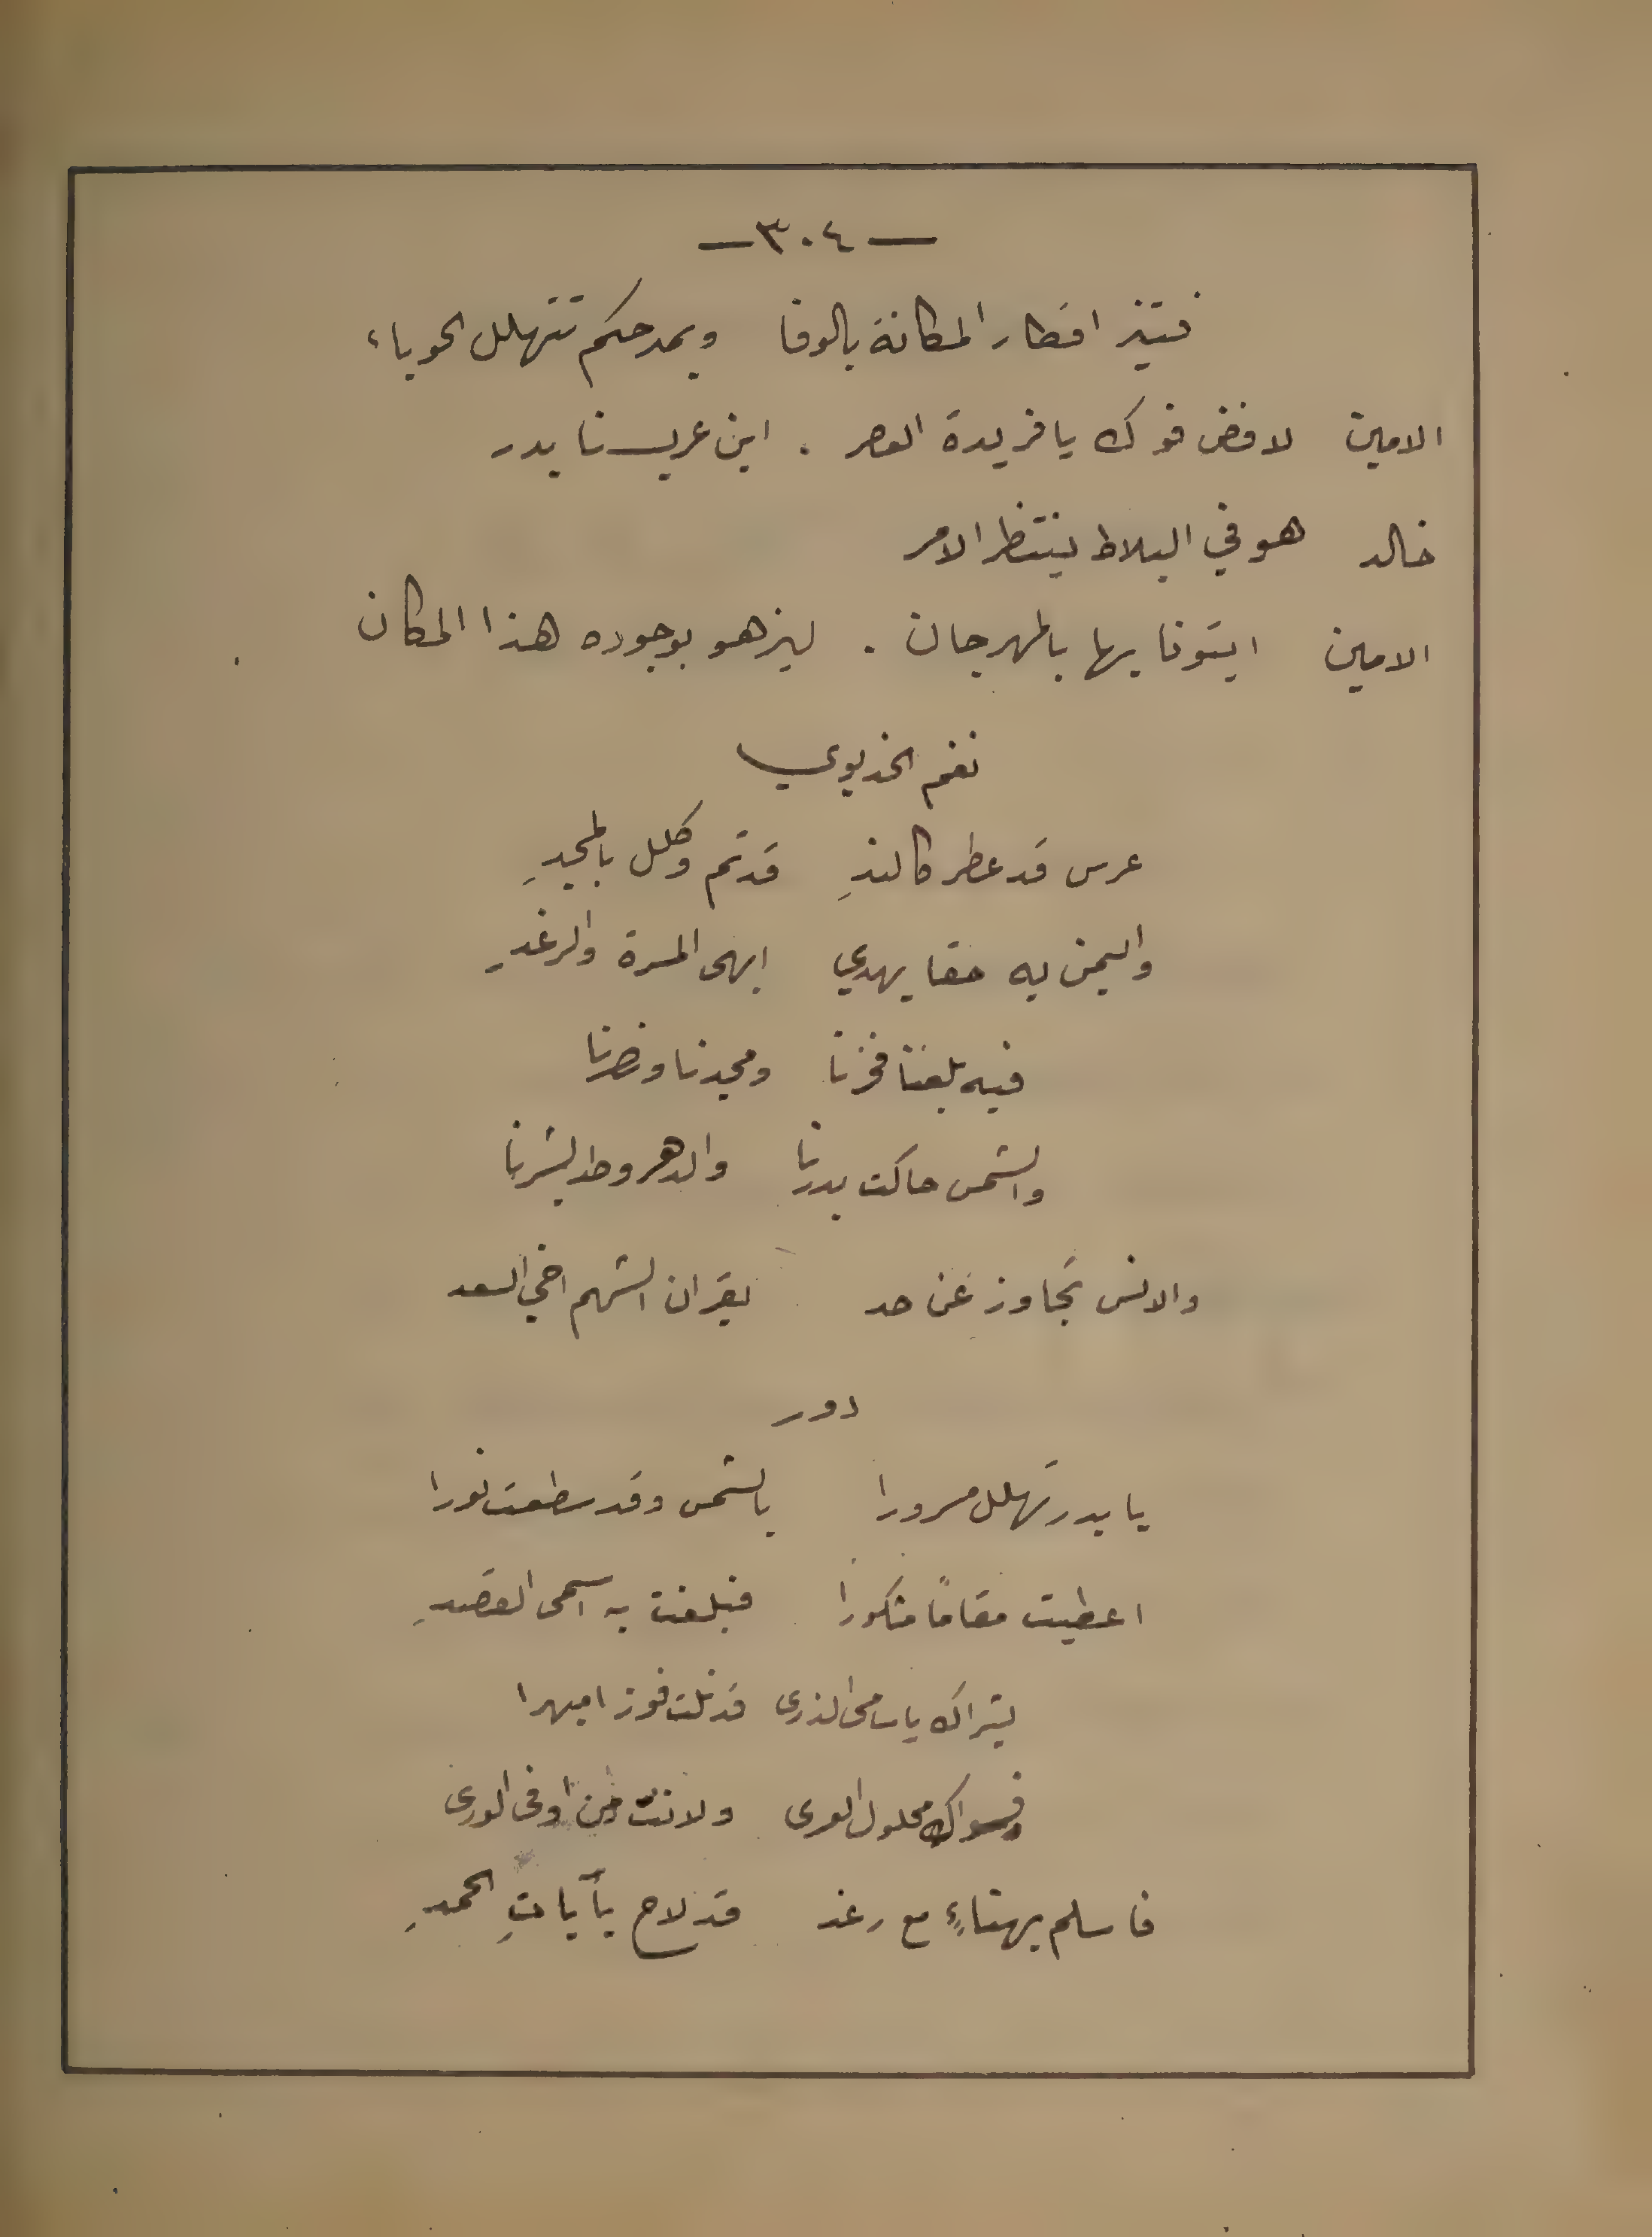 — ٣٠٤ —
فتيز اقطار المكانة بالوفا وبمدحكم تتهلل الحوباء
الامين لا فض فوك يا فريدة العصر . اين عريسنا بدر
خالد هو في البلاط ينتظر الامر
الامين ايتونا بها بالمهرجان . ليزهو بوجوده هذا المكان
نغم الخديوي
عرس قد عطر كالندِ قد تم وكلل بالمجدِ
واليمن به حقا يهدي ابهى المسرة والرغدِ
فيه بلغنا فخرنا ومجدنا ونصرنا
والشمس حاكت بدرنا والدهر وطد بشرنا
والانس تجاوز عن حد بقران الشهم اخي السعد
دور
يا بدر تهلل مسرورا بالشمس وقد سطعت نورا
اعطيت مقامًا مشكورا فبلغت به اسمى القصدِ
بشراك يا سامي الذرى قد نلت فوزا مبهرا
فسواك محلول العرى ولانت من اوفى الورى
فاسلم بهناءٍ مع رغد قد لاح بآياتِ الحمدِ